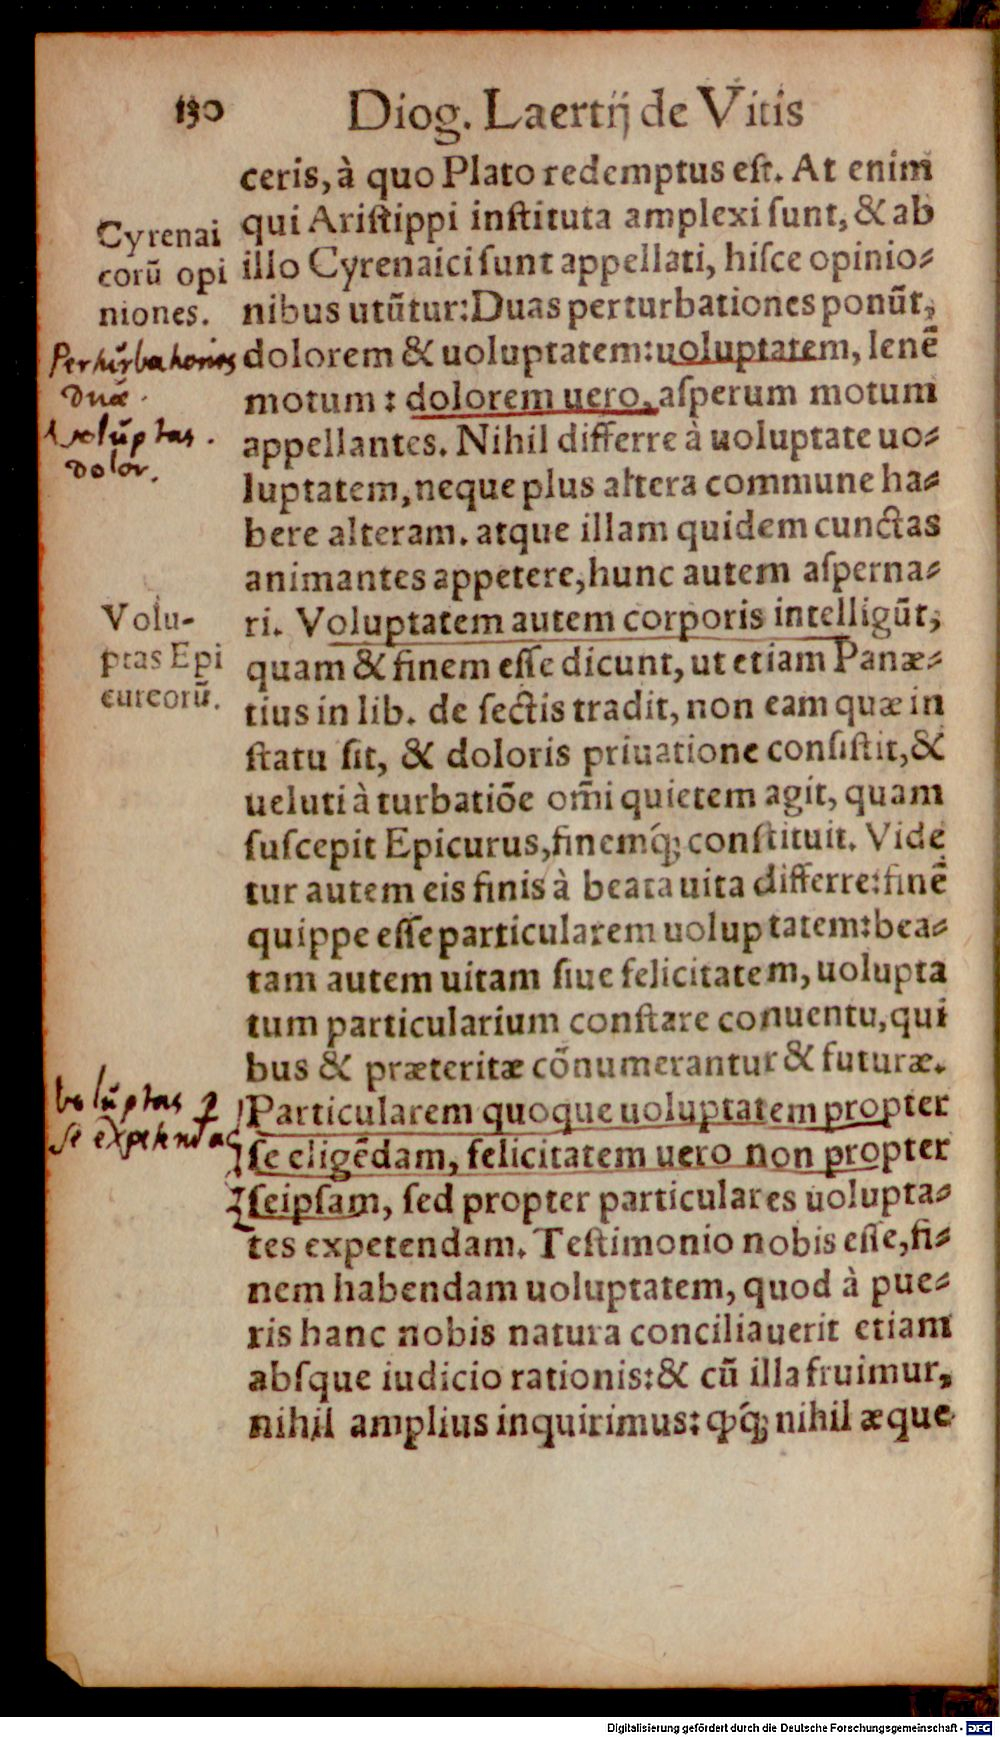 130 Diog. Laertij de Vitis
ceris, à quo Plato redemptus eſt. At enim
qui Ariſtippi inſtituta amplexi ſunt, & ab
illo Cyrenaici ſunt appellati, hiſce opinio-
nibus utũtur: Duas perturbationes ponũt,
dolorem & uoluptatem: uoluptatem, lenẽ
motum: dolorem uero, aſperum motum
appellantes. Nihil differre à uoluptate uo-
luptatem, neque plus altera commune ha-
bere alteram. atque illam quidem cunctas
animantes appetere, hunc autem aſperna-
ri. Voluptatem autem corporis intelligũt,
quam & finem eſſe dicunt, ut etiam Panæ-
tius in lib. de ſectis tradit, non eam quæ in
ſtatu ſit, & doloris priuatione conſiſtit, &
ueluti à turbatiõe om̃i quietem agit, quam
ſuſcepit Epicurus, finemq́; conſtituit. Vide
tur autem eis finis à beata uita differre: finẽ
quippe eſſe particularem uoluptatem: bea-
tam autem uitam ſiue felicitatem, uolupta
tum particularium conſtare conuentu, qui
bus & præteritæ cõnumerantur & futuræ.
Particularem quoque uoluptatem propter
ſe eligẽdam, felicitatem uero non propter
ſeipſam, ſed propter particulares uolupta-
tes expetendam. Teſtimonio nobis eſſe, fi-
nem habendam uoluptatem, quod à pue-
ris hanc nobis natura conciliauerit etiam
abſque iudicio rationis: & cũ illa fruimur,
nihil amplius inquirimus: ꝙq́; nihil æque
Cyrenai
corũ opi
niones.
Perturbationes
duæ.
voluptas.
dolor.
Volu-
ptas Epi
cureorũ.
voluptas ꝓ
se expetenda
Digitalisierung gefördert durch die Deutsche Forschungsgemeinschaft - DFG